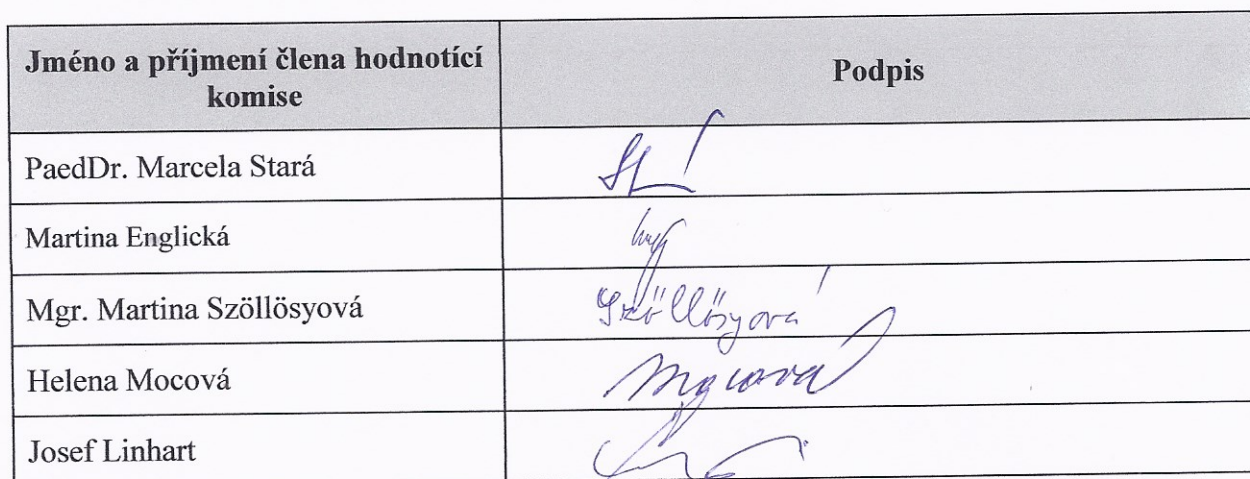 Jméno a příjmení člena hodnotící
komise
Podpis
PaedDr. Marcela Stará
Martina Englická
Mgr. Martina Szöllösyová
Szöllösyová
Helena Mocová
Mocová
Josef Linhart